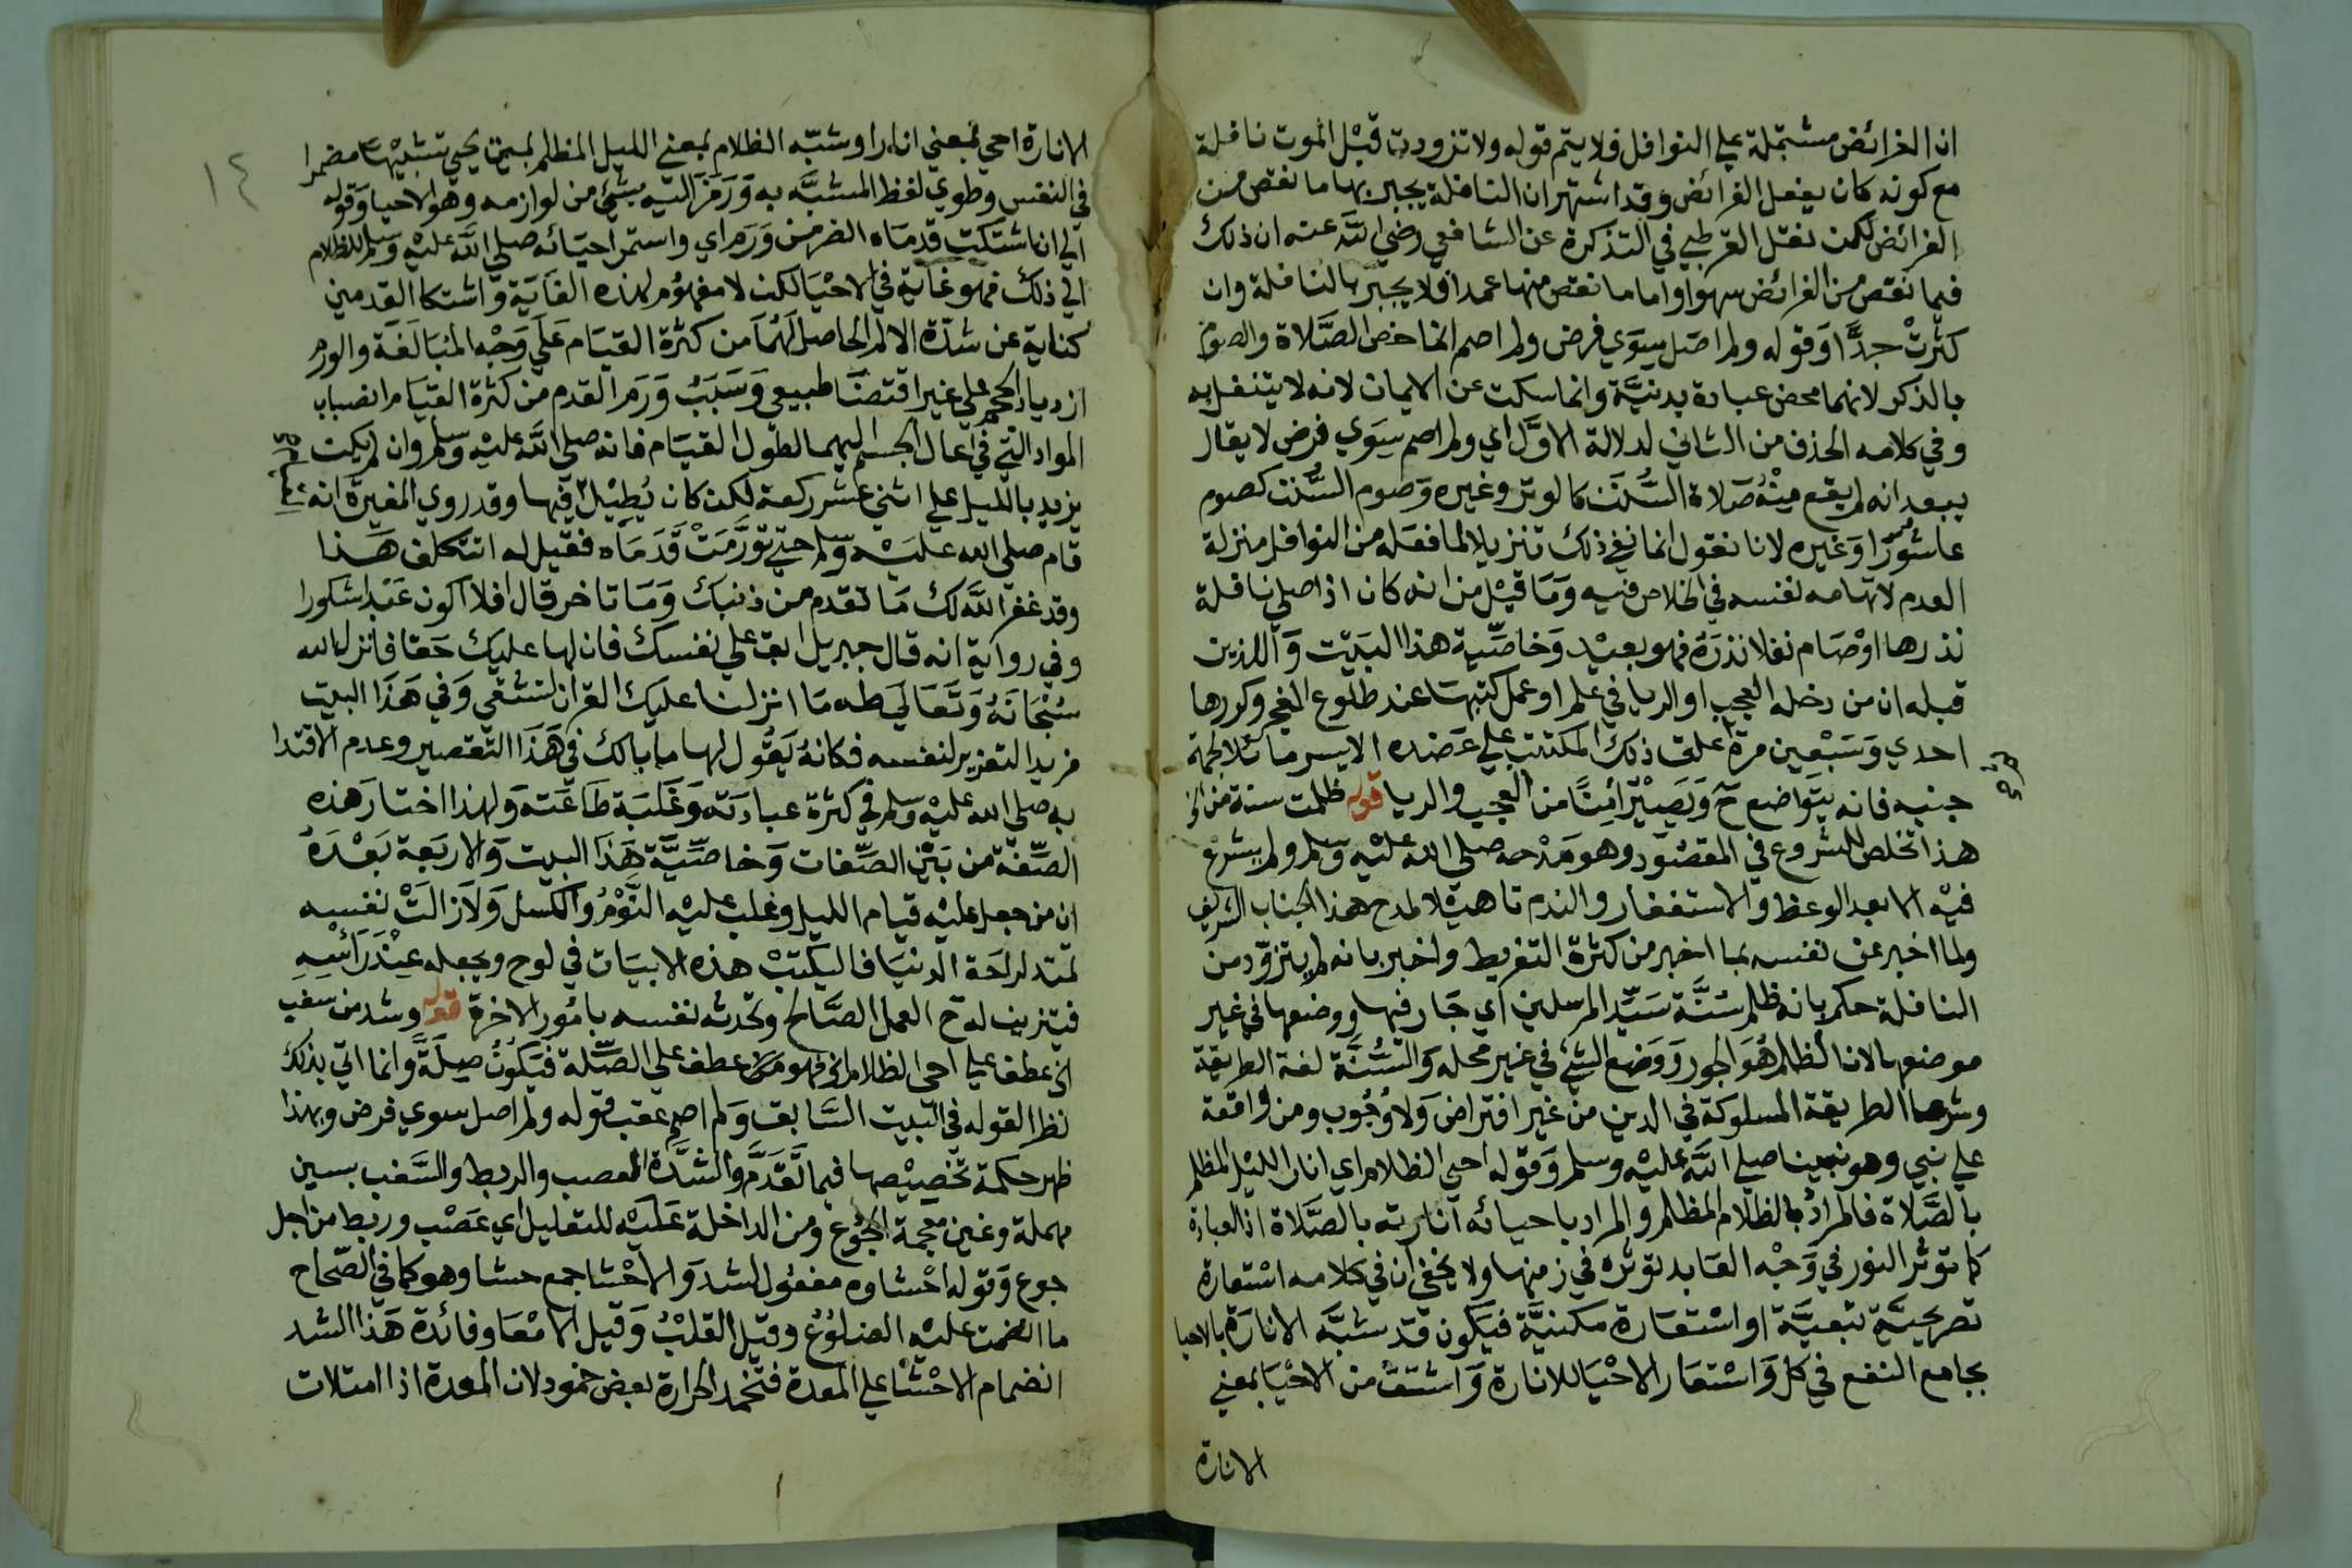 ان الفرائض مشتملة علي النوافل فلا يتم قوله ولا تزودت قبل الموت نافلة
مع كونه كان يفعل الفرائض وقد اشتهر ان النافلة يجبر بها ما نقص من
الفرائض لكن نقل القرطبي في التذكرة عن الشافعي رضي الله عنه ان ذلك
فيما نقص من الفرائض سهوا واما ما نقص منها عمدا فلا يجبر بالنافلة وان
كثرت جدا وقوله ولم اصل سوي فرض ولم اصم انما خص الصلاة والصوم
بالذكر لانهما محض عبادة بدنية وانما سكت عن الايمان لانه لا يتنفل به
وفي كلامه الحذف من الثاني لدلالة الاول اي ولم اصم سوي فرض لا يقال
يبعد انه لم يقع منه صلاة السنن كالوتر وغيره وصوم السنن كصوم
عاشورا وغيره لانا نقول انما نفي ذلك تنزيلا لما فعله من النوافل منزلة
العدم لاتهامه نفسه في الخلاص فيه وما قيل من انه كان اذا صلي نافلة
نذرها او صام نفلا نذره فهو بعيد وخاصية هذا البيت والذين
قبله ان من دخله العجب او الريا في علم او عمل كتبها عند طلوع الفجر وكررها
احدي وسبعين مرة علق ذلك المكتتب علي عضده الايسر مائلا لجهة
جنبه فانه يتواضع ح ويصير آمنا من العجب والريا قوله ظلمت سنة من الخ
هذا تخلص للشروع في المقصود وهو مدحه صلي الله عليه وسلم ولم يشرع
فيه الا بعد الوعظ والاستغفار والندم تاهيلا لمدح هذا الجناب الشريف
ولما اخبر عن نفسه بما اخبر من كثرة التفريط واخبر بانه لم يتزود من
النافلة حكم بانه ظلم سنة سيد المرسلين اي جار فيها ووضعها في غير
موضعها لان الظلم هو الجور ووضع الشيء في غير محله والسنة لغة الطريقة
وشرعا الطريقة المسلوكة في الدين من غير افتراض ولا وجوب ومن واقعة
علي نبي وهو نبينا صلي الله عليه وسلم وقوله احيي الظلام اي انار الليل المظلم
بالصلاة فالمراد بالظلام المظلم والمراد باحيائه انارته بالصلاة اذ العبادة
كما توثر النور في وجه العابد توثره في زمنها ولا يخفي ان في كلامه استعارة
تصريحية تبعية او استعارة مكنية فيكون قد شبه الانارة بالاحيا
بجامع النفع في كل واستعار الاحيا للانارة واشتق من الاحيا بمعني
الانارة
الانارة احيي بمعني انار او شبه الظلام بمعني الليل المظلم بميت يحيي تشبيها مضمرا
في النفس وطوي لفظ المشبه به ورمز اليه بشئ من لوازمه وهو الاحيا وقوله
الي ان اشتكت قدماه الضر من ورم اي واستمر احيائه صلي الله عليه وسلم للظلام
الي ذلك فهو غاية في الاحيا لكن لا مفهوم لهذه الغاية واشتكا القدمين
كناية عن شدة الالم الحاصل لهما من كثرة القيام علي وجه المبالغة والورم
ازدياد الحجم علي غير اقتضا طبيعي وسبب ورم القدم من كثرة القيام انصباب
المواد التي في اعالي الجسم اليهما لطول القيام فانه صلي الله عليه وسلم وان لم يكن
يزيد بالليل علي اثني عشر ركعة لكن كان يطيل فيها وقد روي المغيرة انه
قام صلي الله عليه وسلم حتي تورمت قدماه فقيل له اتتكلف هذا
وقد غفر الله لك ما تقدم من ذنبك وما تاخر قال افلا اكون عبدا شكورا
وفي رواية انه قال جبريل ابق علي نفسك فان لها عليك حقا فانزل الله
سبحانه وتعالي طه ما انزلنا عليك القران لتشقي وفي هذا البيت
مزيد التعزير لنفسه فكانه يقول لها ما بالك في هذا التقصير وعدم الاقتدا
به صلي الله عليه وسلم في كثرة عبادته وغلبة طاعته ولهذا اختار هذه
الصفة من بين الصفات وخاصية هذا البيت والاربعة بعده
ان من جعل عليه قيام الليل وغلب عليه النوم والكسل ولازالت نفسه
تمتد لراحة الدنيا فاليكتب هذه الابيات في لوح ويجعله عند راسه
فيتزين له ح العمل الصالح وتحدثه نفسه بامور الاخرة قوله وشد من سغب
الخ عطف علي احيي الظلام الخ فهو من عطف علي الصلة فيكون صلة وانما اتي بذلك
نظرا لقوله في البيت السابق ولم اصم عقب قوله ولم اصل سوي فرض وبهذا
ظهر حكمة تخصيصها فيما تقدم والشدة العصب والربط والسغب بسين
مهملة وغين معجمة الجوع ومن الداخلة عليه للتعليل اي عصب وربط من اجل
جوع وقوله احشاوه مفعول لشد والاحشا جمع حشا وهو كما في الصحاح
ما انضمت عليه الضلوع وقيل القلب وقيل الامعا وفائدة هذا الشد
انضمام الاحشا علي المعدة فتخمد الحرارة بعض خمود لان المعدة اذا امتلات
١٤